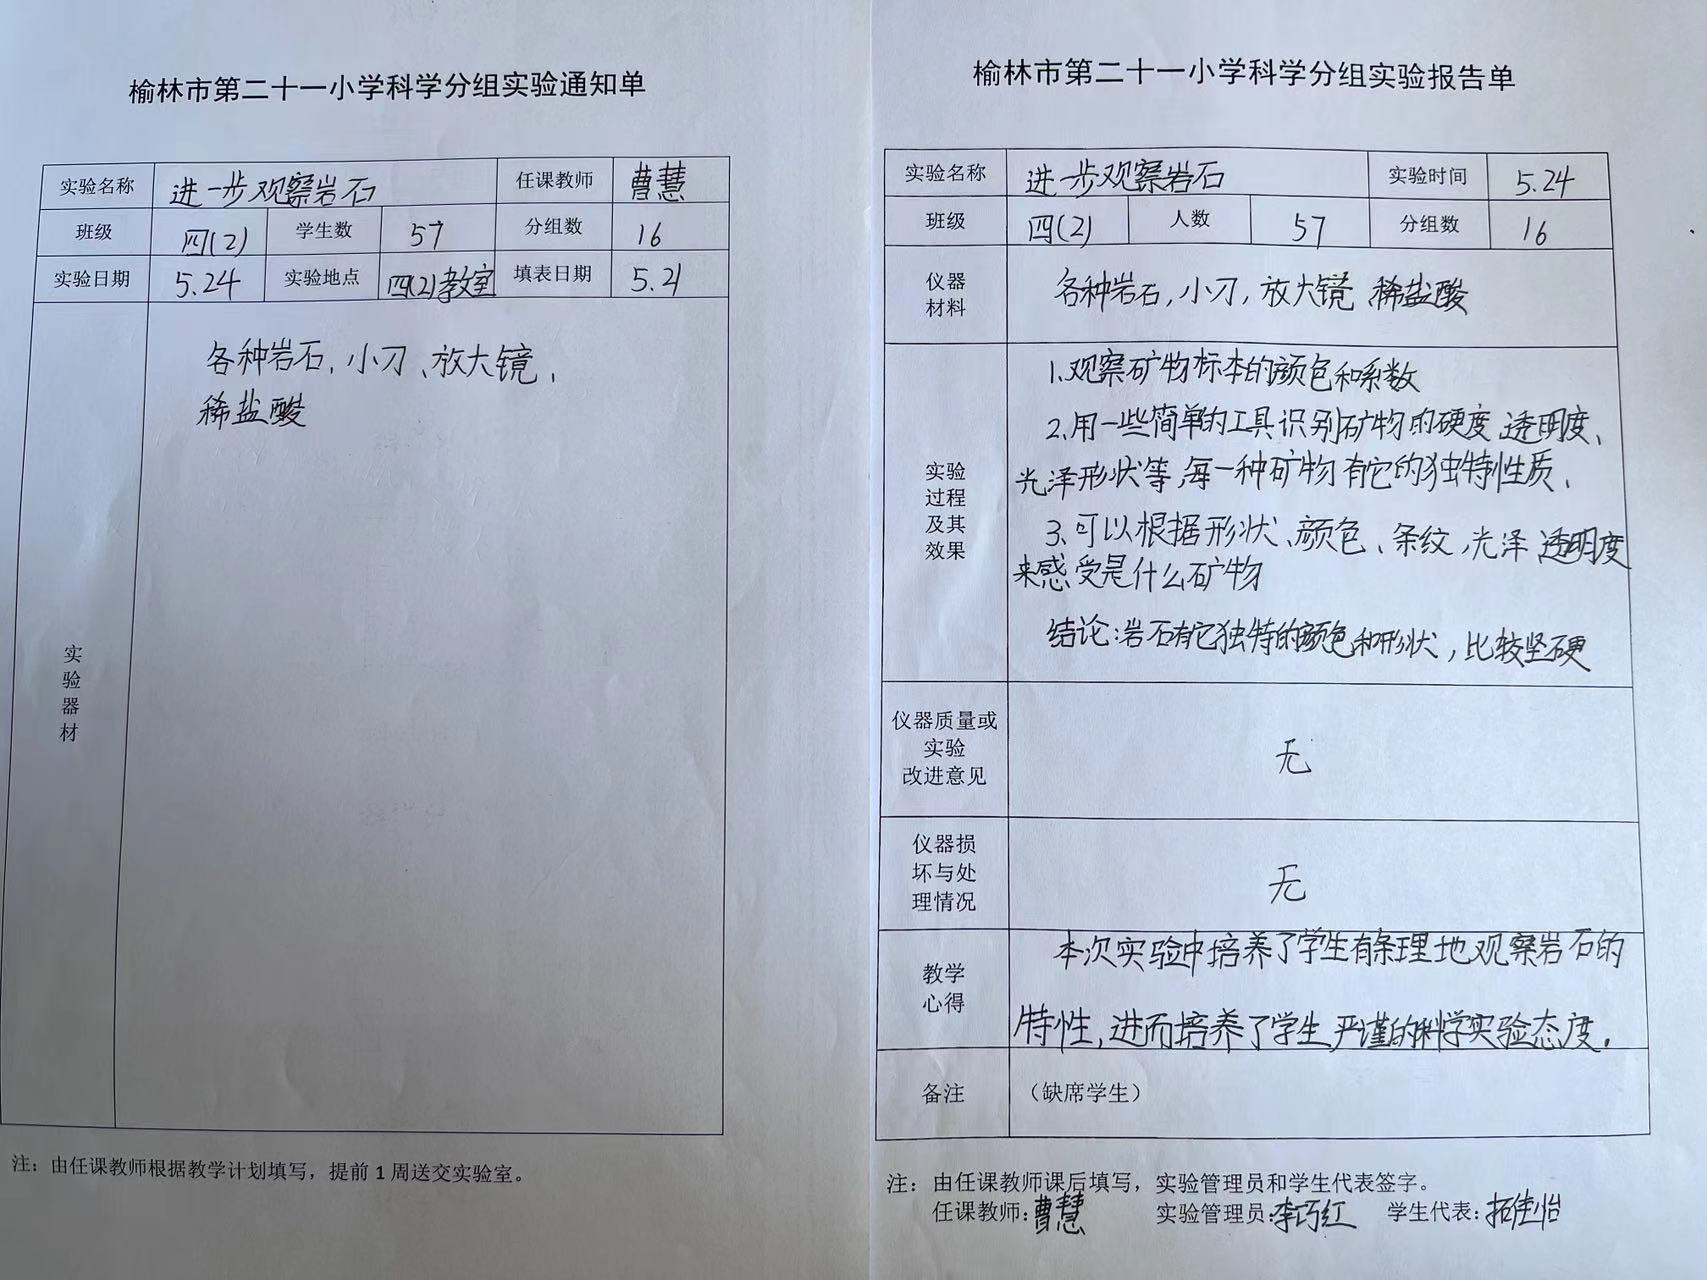 榆林市第二十一小学科学分组实验通知单
实验名称 进一步观察岩石 任课教师 曹慧
班级 四(2) 学生数 57 分组数 16
实验日期 5.24 实验地点 四(2)教室 填表日期 5.21
实验器材
各种岩石,小刀、放大镜、
稀盐酸
注：由任课教师根据教学计划填写，提前1周送交实验室。
榆林市第二十一小学科学分组实验报告单
实验名称 进一步观察岩石 实验时间 5.24
班级 四(2) 人数 57 分组数 16
仪器
材料
各种岩石,小刀,放大镜 稀盐酸
实验
过程
及其
效果
1.观察矿物标本的颜色和系数
2.用一些简单的工具识别矿物的硬度 透明度、
光泽形状等,每一种矿物有它的独特性质.
3.可以根据形状、颜色、条纹,光泽 透明度
来感受是什么矿物
结论:岩石有它独特的颜色和形状,比较坚硬
仪器质量或
实验
改进意见
无
仪器损
坏与处
理情况
无
教学
心得
本次实验中培养了学生有条理地观察岩石的
特性,进而培养了学生严谨的科学实验态度.
备注 （缺席学生）
注：由任课教师课后填写，实验管理员和学生代表签字。
任课教师:曹慧 实验管理员:李巧红 学生代表:拓佳怡